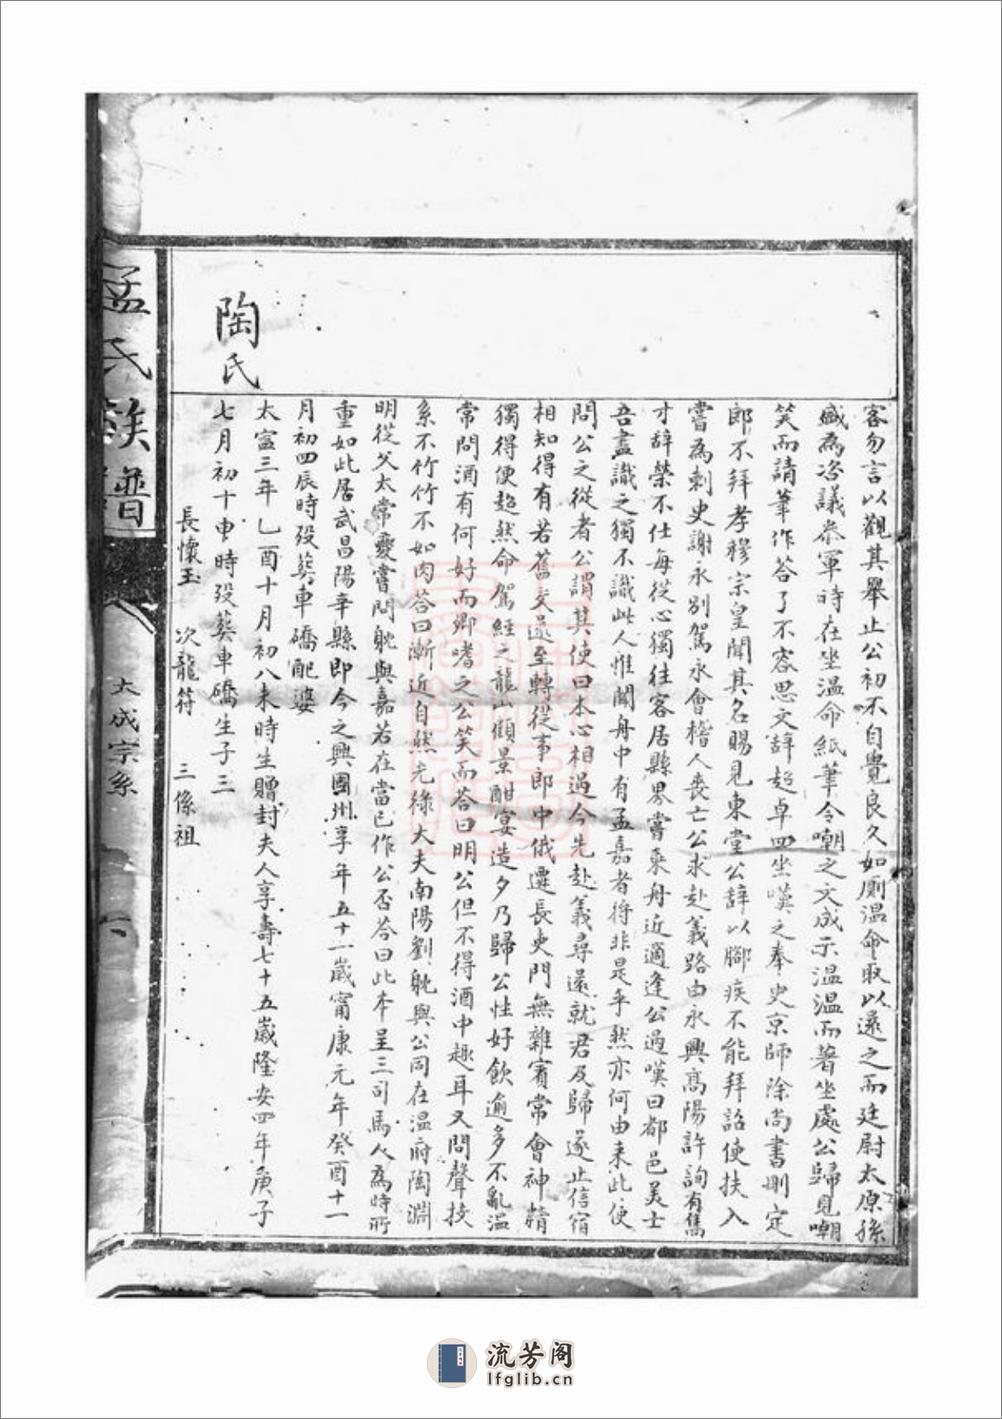 客勿言以觀其舉止公初不自覺良久如廁温命取以還之而廷尉太原孫
盛為咨議叅軍時在坐温命紙筆令嘲之文成示温温而著坐處公歸見嘲
笑而請筆作答了不容思文辞超卓四坐嘆之奉史京師除尚書刪定
郎不拜孝穆宗皇聞其名賜見東堂公辞以腳疾不能拜詔使扶入
嘗為刺史謝永别駕永會稽人喪亡公求赴義路由永興高陽許詢有雋
才辞榮不仕每從心獨往客居縣界嘗乘舟近適逢公過嘆曰都邑美士
吾盡識之獨不識此人惟聞舟中有孟嘉者将非是乎然亦何由来此使
問公之從者公謂其使曰本心相過今先赴義尋還就君及歸遂止信宿
相知得有若舊交還至轉從事郎中俄遷長史門無雜賓常會神精
獨得便超然命駕經之龍山顧景酣宴造夕乃歸公性好飲逾多不亂温
常問酒有何好而卿嗜之公笑而答曰明公但不得酒中趣耳又問聲技
糸不竹竹不如肉答曰漸近自然光祿大夫南陽劉躭與公同在温府陶淵
明從父太常夔嘗問躭與嘉若在當已作公否答曰此本呈三司馬人為時所
重如此居武昌陽辛縣即今之興國州享年五十一歲甯康元年癸酉十一
月初四辰時殁葬車磽配婆
陶氏
太寍三年乙酉十月初八未時生贈封夫人享壽七十五歲隆安四年庚子
七月初十申時殁葬車磽生子三
長懷玉 次龍符 三係祖
孟氏族譜
大成宗系
流芳阁
lfglib.cn